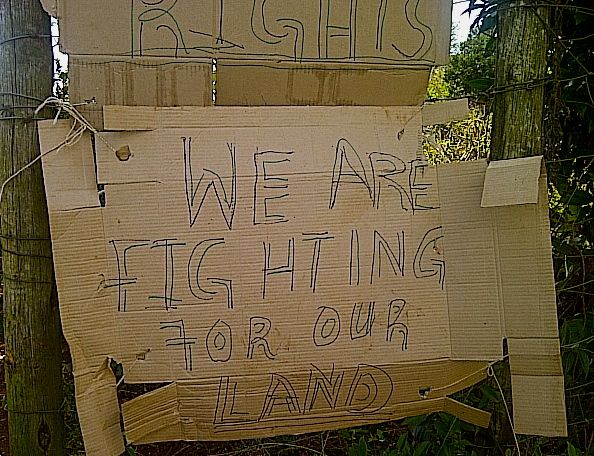 RIGHTS
WE ARE
FIGHTING
FOR OUR
LAND